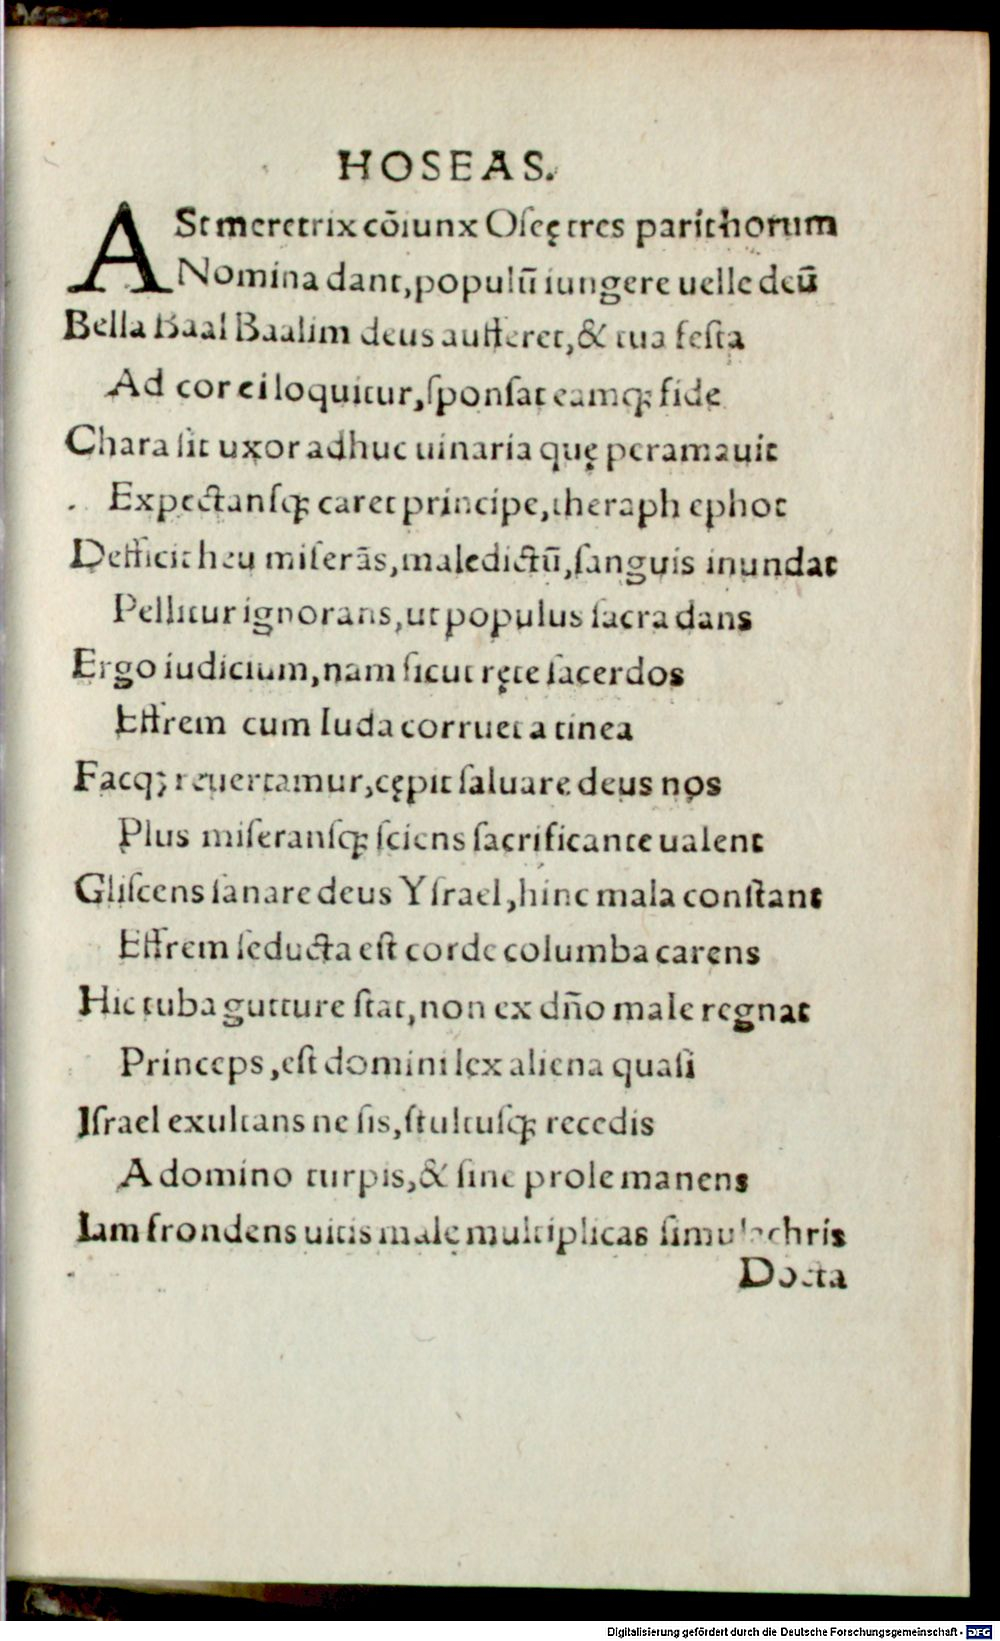 HOSEAS.
ASt meretrix cōiunx Oſeę tres parit horum
Nomina dant,populū iungere uelle deū
Bella Baal Baalim deus aufferet,& tua feſta
Ad cor ei loquitur,ſponſat eamq; fide
Chara ſit uxor adhuc uinaria quę peramauit
Expectanſq; caret principe,theraph ephot
Defficit heu miſerās,maledictū,ſanguis inundat
Pellitur ignorans,ut populus ſacra dans
Ergo iudicium,nam ſicut ręte ſacerdos
Effrem cum Iuda corruet a tinea
Facq; reuertamur,cępit ſaluare deus nos
Plus miſeranſq; ſciens ſacrificante ualent
Gliſcens ſanare deus Yſrael,hinc mala conſtant
Effrem ſeducta eſt corde columba carens
Hic tuba gutture ſtat,non ex dño male regnat
Princeps,eſt domini lex aliena quaſi
Iſrael exultans ne ſis,ſtultuſq; recedis
A domino turpis,& ſine prole manens
Iam frondens uitis malę multiplicas ſimulachris
Docta
Digitalisierung gefördert durch die Deutsche Forschungsgemeinschaft - DFG